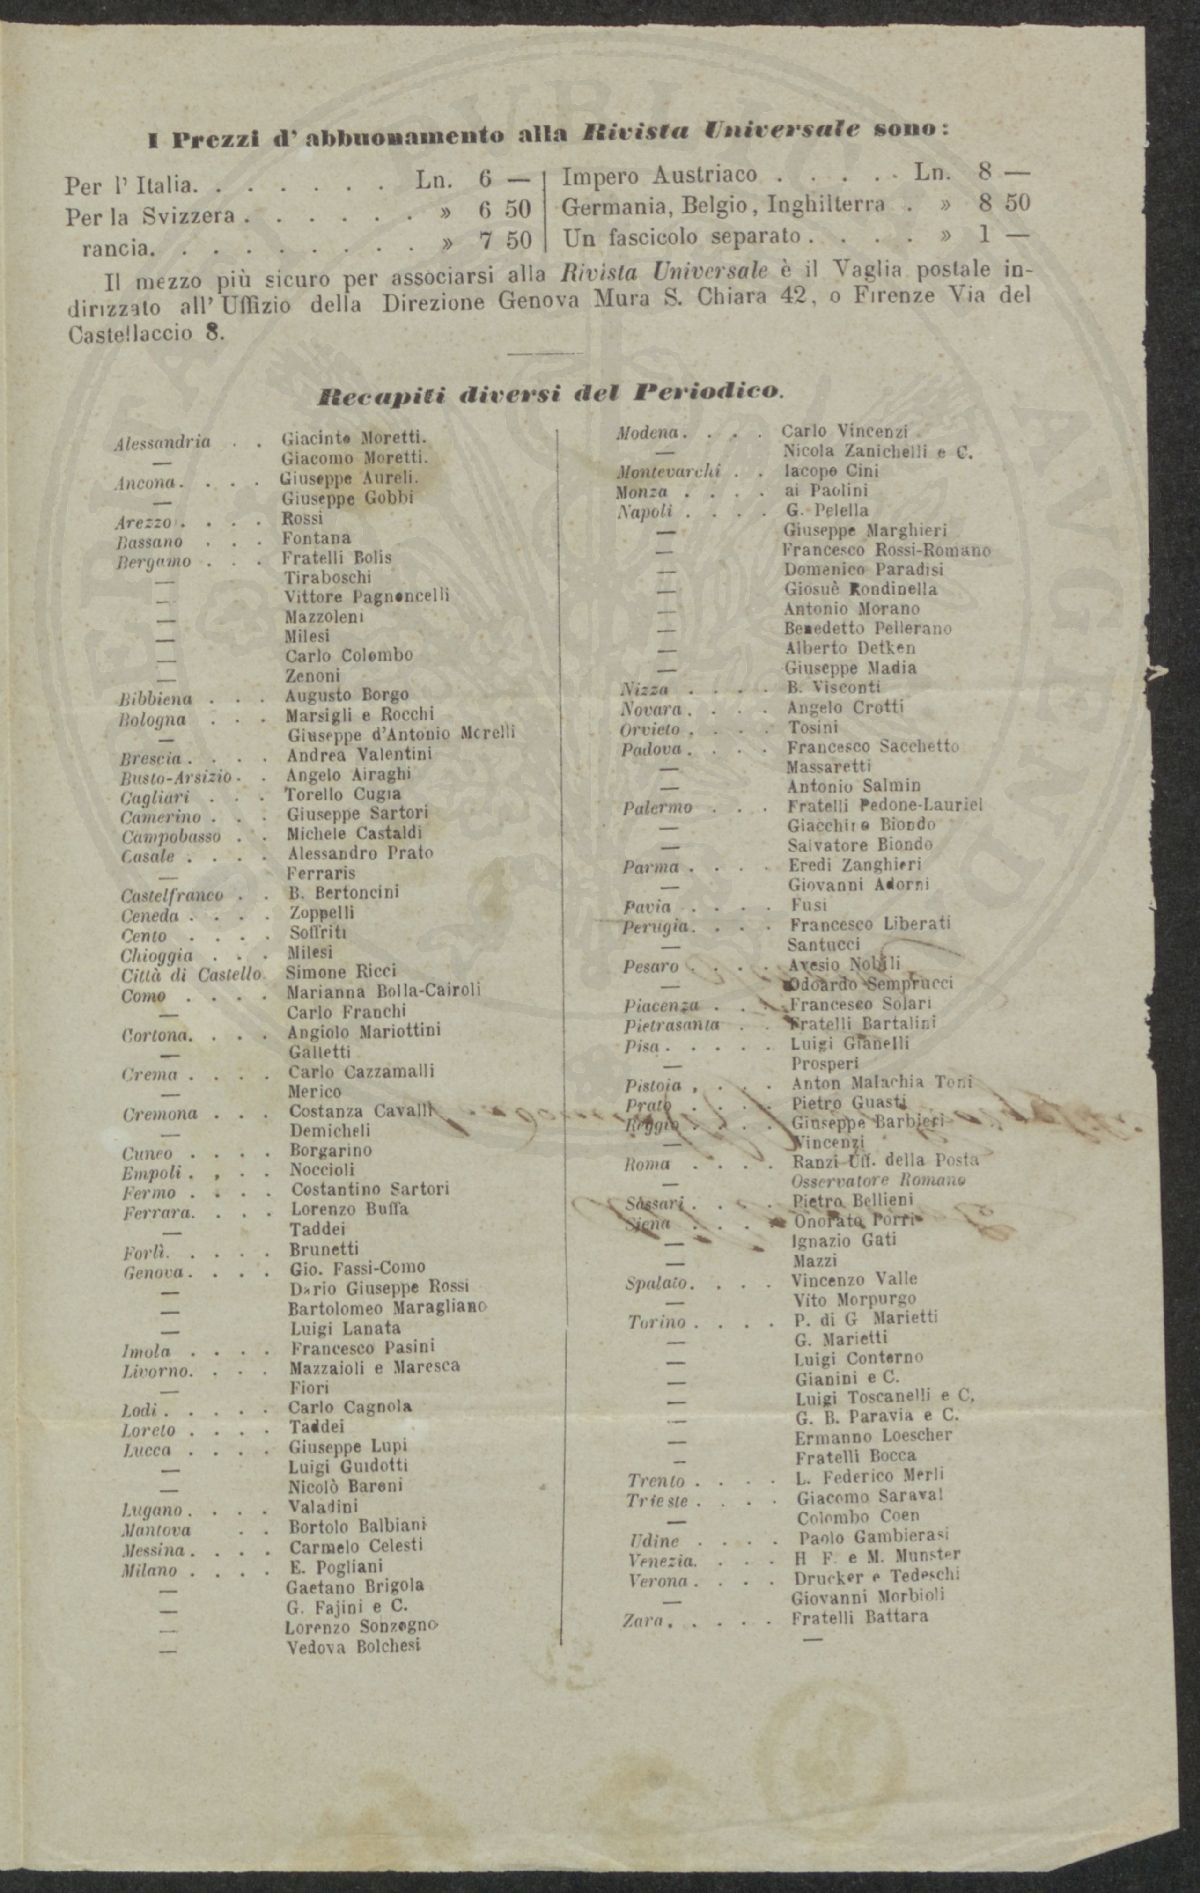 I Prezzi d'abbuonamento alla Rivista Universale sono:
Per l'Italia. . . . . . . Ln. 6 —
Per la Svizzera . . . . . . . » 6 50
rancia. . . . . . . . . . » 7 50
Impero Austriaco . . . . . Ln. 8 —
Germania, Belgio, Inghilterra . » 8 50
Un fascicolo separato . . . . » 1 —
Il mezzo più sicuro per associarsi alla Rivista Universale è il Vaglia postale in-
dirizzato all'Uffizio della Direzione Genova Mura S. Chiara 42, o Firenze Via del
Castellaccio 8.
Recapiti diversi del Periodico.
Alessandria . . Giacinto Moretti.
— Giacomo Moretti.
Ancona. . . . Giuseppe Aureli.
— Giuseppe Gobbi
Arezzo . . . . Rossi
Bassano . . . Fontana
Bergamo . . . Fratelli Bolis
— Tiraboschi
— Vittore Pagnoncelli
— Mazzoleni
— Milesi
— Carlo Colombo
— Zenoni
Bibbiena . . . Augusto Borgo
Bologna . . . Marsigli e Rocchi
— Giuseppe d'Antonio Morelli
Brescia . . . . Andrea Valentini
Busto-Arsizio . . Angelo Airaghi
Cagliari . . . Torello Cugia
Camerino . . . Giuseppe Sartori
Campobasso . . Michele Castaldi
Casale . . . . Alessandro Prato
— Ferraris
Castelfranco . . B. Bertoncini
Ceneda . . . . Zoppelli
Cento . . . . Soffriti
Chioggia . . . Milesi
Città di Castello. Simone Ricci
Como . . . . Marianna Bolla-Cairoli
— Carlo Franchi
Cortona. . . . Angiolo Mariottini
— Galletti
Crema . . . . Carlo Cazzamalli
— Merico
Cremona . . . Costanza Cavalli
— Demicheli
Cuneo . . . . Borgarino
Empoli . . . . Noccioli
Fermo . . . . Costantino Sartori
Ferrara. . . . Lorenzo Buffa
— Taddei
Forlì. . . . . Brunetti
Genova . . . . Gio. Fassi-Como
— Dario Giuseppe Rossi
— Bartolomeo Maragliano
— Luigi Lanata
Imola . . . . Francesco Pasini
Livorno. . . . Mazzaioli e Maresca
— Fiori
Lodi . . . . . Carlo Cagnola
Loreto . . . . Taddei
Lucca . . . . Giuseppe Lupi
— Luigi Guidotti
— Nicolò Baroni
Lugano . . . . Valadini
Mantova . . Bortolo Balbiani
Messina . . . . Carmelo Celesti
Milano . . . . E. Pogliani
— Gaetano Brigola
— G. Fajini e C.
— Lorenzo Sonzogno
— Vedova Bolchesi
Modena . . . . Carlo Vincenzi
— Nicola Zanichelli e C.
Montevarchi . . Iacopo Cini
Monza . . . . ai Paolini
Napoli . . . . G. Pelella
— Giuseppe Marghieri
— Francesco Rossi-Romano
— Domenico Paradisi
— Giosuè Rondinella
— Antonio Morano
— Benedetto Pellerano
— Alberto Detken
— Giuseppe Madia
Nizza . . . . B. Visconti
Novara . . . . Angelo Crotti
Orvieto . . . . Tosini
Padova . . . . Francesco Sacchetto
— Massaretti
— Antonio Salmin
Palermo . . . Fratelli Pedone-Lauriel
— Giacchino Biondo
— Salvatore Biondo
Parma . . . . Eredi Zanghieri
— Giovanni Adorni
Pavia . . . . Fusi
Perugia. . . . Francesco Liberati
— Santucci
Pesaro . . . . Avesio Nobili
— Odoardo Semprucci
Piacenza . . . Francesco Solari
Pietrasanta . . Fratelli Bartalini
Pisa . . . . . Luigi Gianelli
— Prosperi
Pistoia . . . . Anton Malachia Toni
Prato . . . . Pietro Guasti
Reggio . . . . Giuseppe Barbieri
— Vincenzi
Roma . . . . Ranzi Uff. della Posta
— Osservatore Romano
Sassari . . . . Pietro Bellieni
Siena . . . . Onorato Porri
— Ignazio Gati
— Mazzi
Spalato. . . . Vincenzo Valle
— Vito Morpurgo
Torino . . . . P. di G Marietti
— G. Marietti
— Luigi Conterno
— Gianini e C.
— Luigi Toscanelli e C.
— G. B. Paravia e C.
— Ermanno Loescher
— Fratelli Bocca
Trento . . . . L. Federico Merli
Trieste . . . . Giacomo Saraval
— Colombo Coen
Udine . . . . Paolo Gambierasi
Venezia. . . . H F. e M. Munster
Verona . . . . Drucker e Tedeschi
— Giovanni Morbioli
Zara . . . . . Fratelli Battara
—